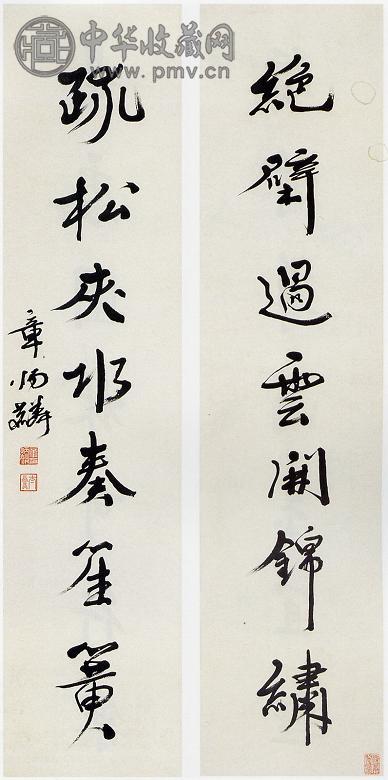 中华收藏网
www.pmv.cn
絶壁過雲開錦繡
疏松夾水奏笙簧
章炳麟